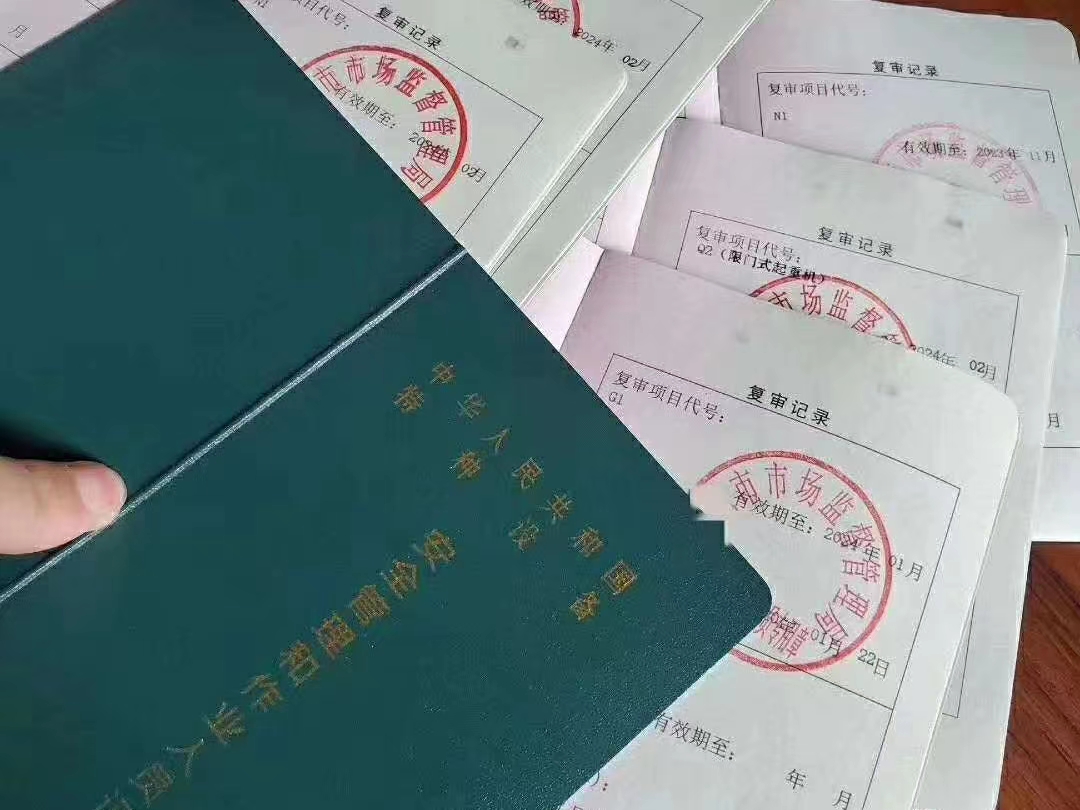 中华人民共和国
特种设备
安全管理和作业人员
月
N1
复审记录
市市场监督管理局
有效期至：
02月
复审记录
2024年 02月
复审记录
复审项目代号：
N1
有效期至：2023年 11月
监督管理
复审记录
复审项目代号：
Q2（限门式起重机）
市场监督
2024年 02月
月
复审记录
复审项目代号：
G1
市市场监督管理局
有效期至：2024年 01月
01月 22日
专用章
有效期至：
年 月